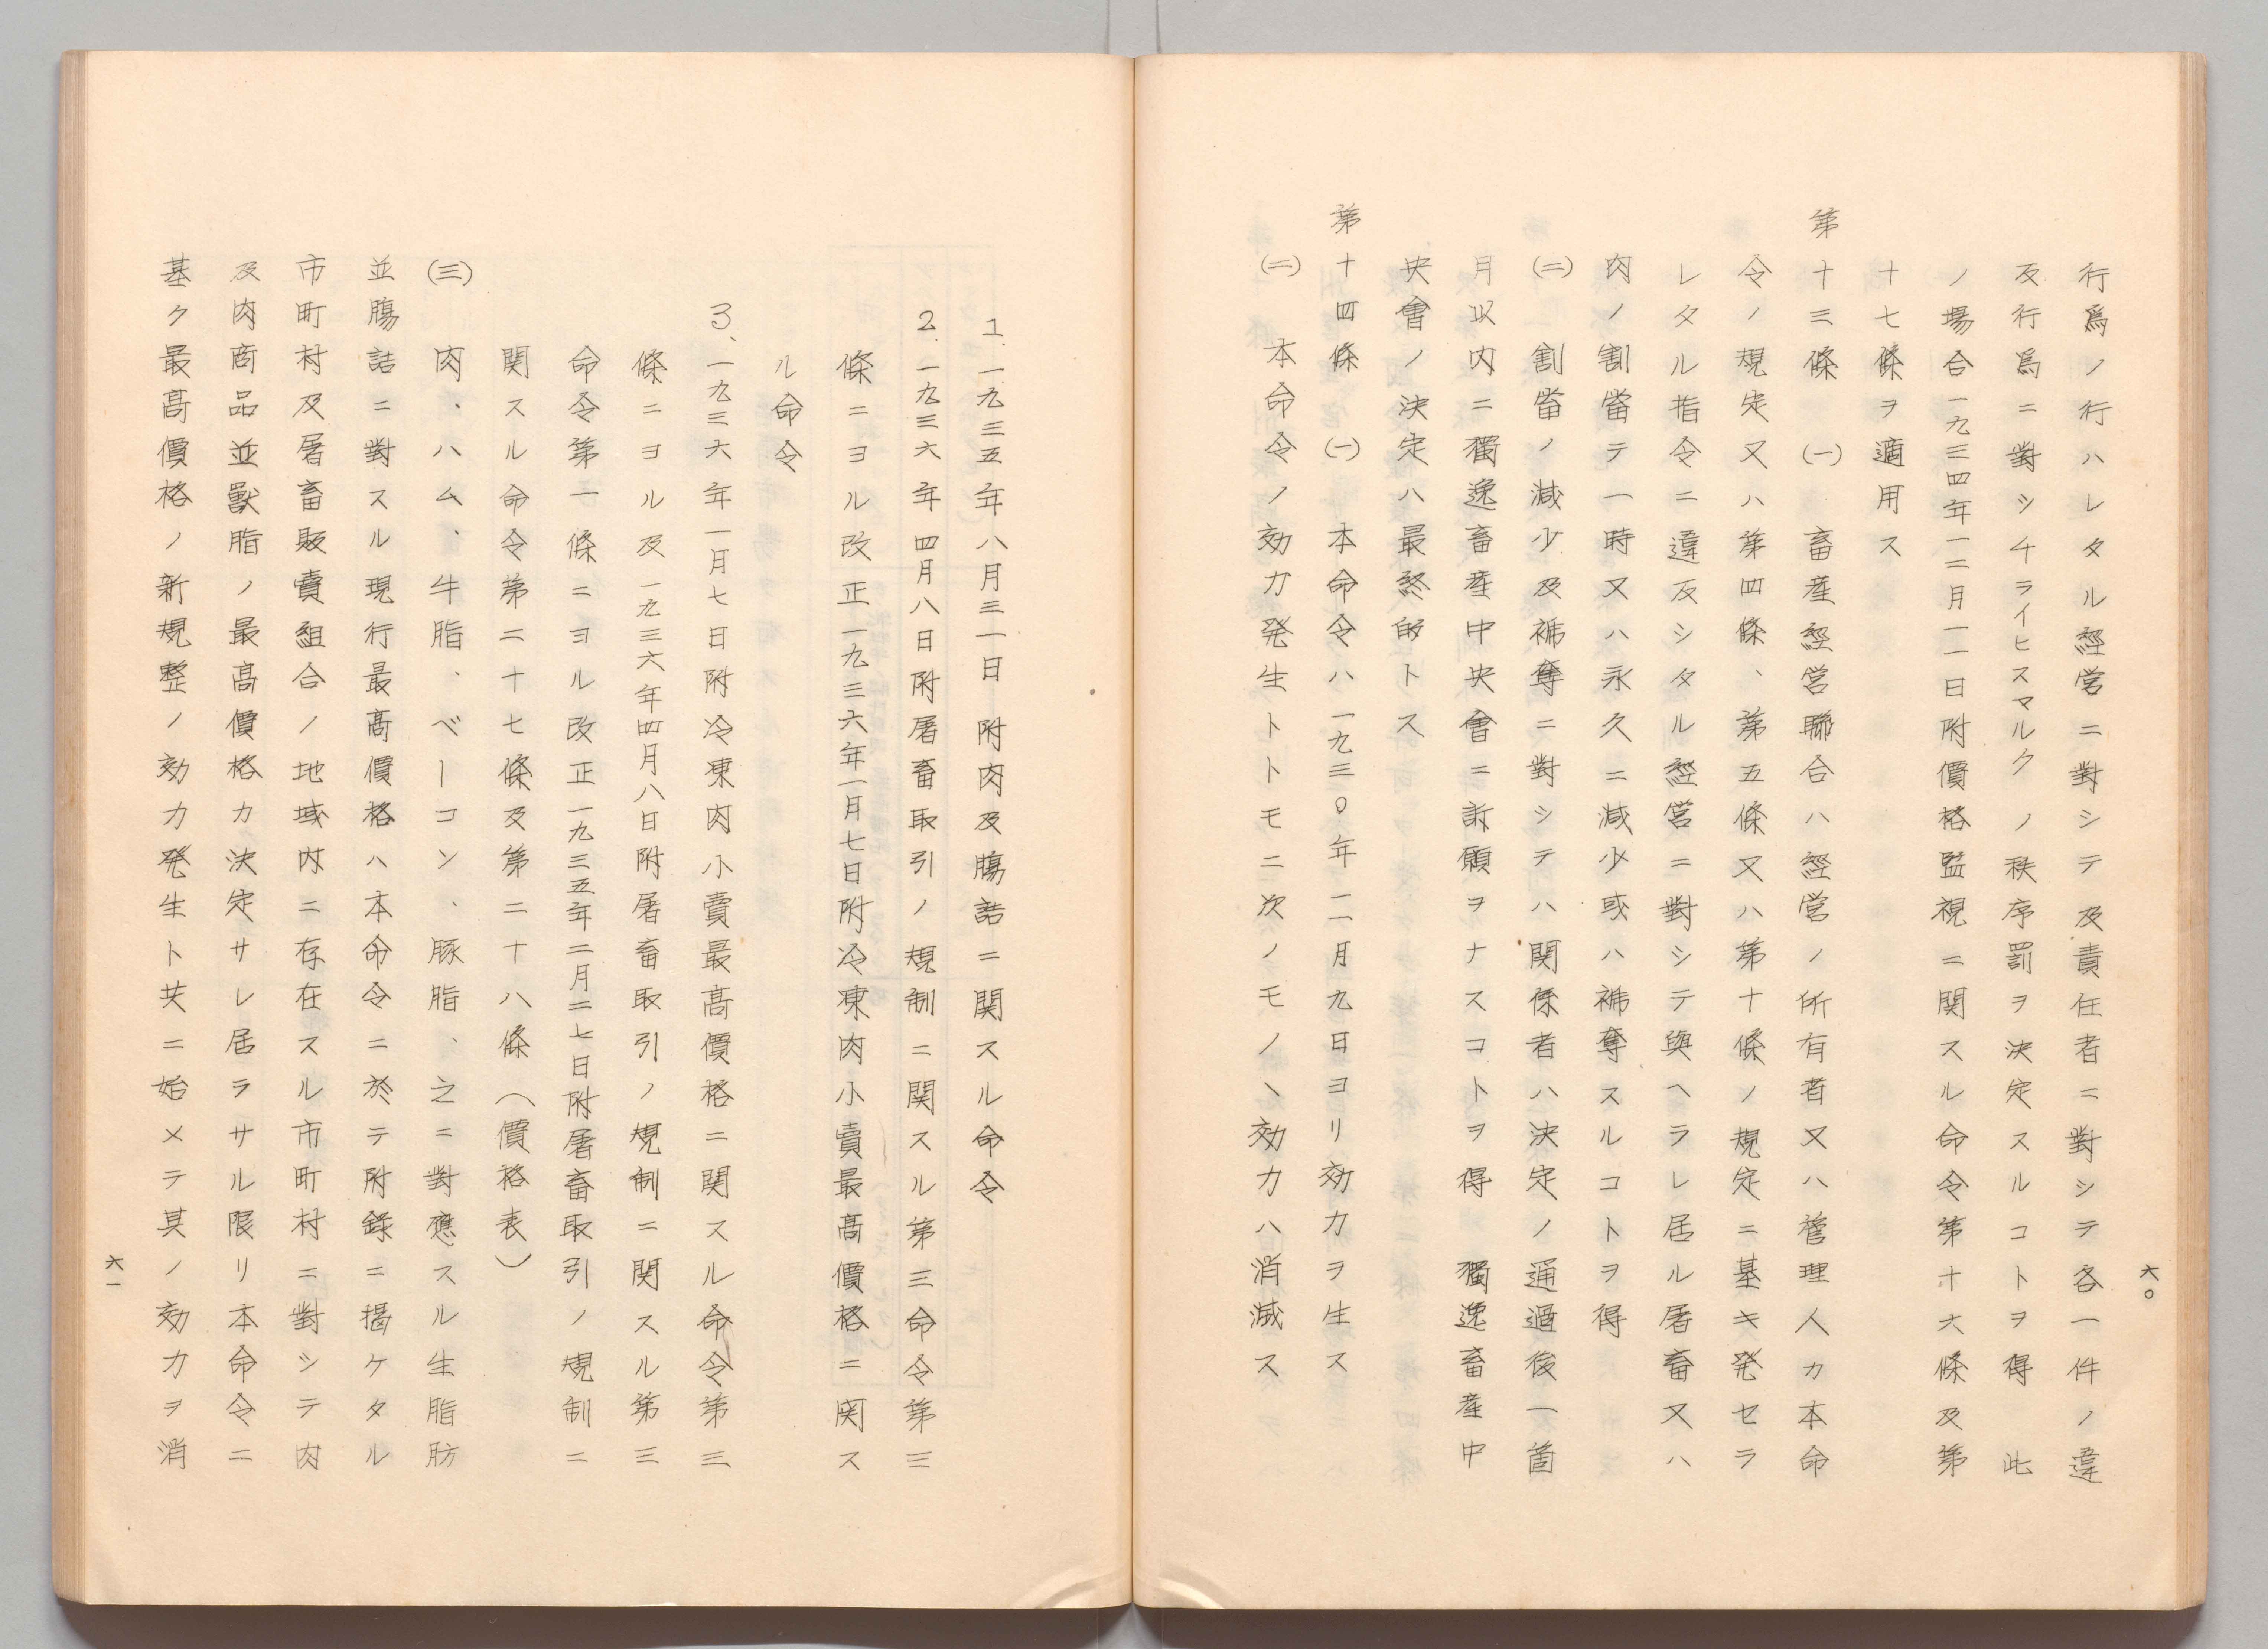 行爲ノ行ハレタル經営ニ對シテ及責任者ニ對シテ各一件ノ違
反行爲ニ對シ千ライヒスマルクノ秩序罰ヲ決定スルコトヲ得 此
ノ場合一九三四年一二月一一日附價格監視ニ関スル命令第十六條及第
十七條ヲ適用ス
第十三條 (一) 畜産經営聯合ハ經営ノ所有者又ハ管理人カ本命
令ノ規定又ハ第四條、第五條又ハ第十條ノ規定ニ基キ発セラ
レタル指令ニ違反シタル經営ニ對シテ與ヘラレ居ル屠畜又ハ
肉ノ割當テ一時又ハ永久ニ減少或ハ褫奪スルコトヲ得
(二) 割當ノ減少及褫奪ニ對シテハ関係者ハ決定ノ通過後一箇
月以内ニ獨逸畜産中央會ニ訴願ヲナスコトヲ得 獨逸畜産中
央會ノ決定ハ最終的トス
第十四條 (一) 本命令ハ一九三〇年一一月九日ヨリ効力ヲ生ス
(二) 本命令ノ効力発生トトモニ次ノモノヽ効力ハ消滅ス
六〇
1. 一九三五年八月三一日 附肉及腸詰ニ関スル命令
2. 一九三六年四月八日附屠畜取引ノ規制ニ関スル第三命令第三
條ニヨル改正一九三六年一月七日附冷凍肉小賣最高價格ニ関ス
ル命令
3、一九三六年一月七日附冷凍肉小賣最高價格ニ関スル命令第三
條ニヨル及一九三六年四月八日附屠畜取引ノ規制ニ関スル第三
命令第一條ニヨル改正一九三五年二月二七日附屠畜取引ノ規制ニ
関スル命令第二十七條及第二十八條(價格表)
(三) 肉、ハム、牛脂、ベーコン、豚脂、之ニ對應スル生脂肪
並腸詰ニ對スル現行最高價格ハ本命令ニ於テ附録ニ揭ケタル
市町村及屠畜販賣組合ノ地域内ニ存在スル市町村ニ對シテ肉
及肉商品並獸脂ノ最高價格カ決定サレ居ラサル限リ本命令ニ
基ク最高價格ノ新規整ノ効力発生ト共ニ始メテ其ノ効力ヲ消
六一